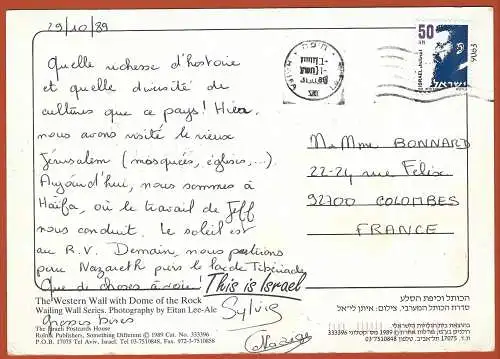 29/10/89
Quelle richesse d'histoire
et quelle diversité de
cultures que ce pays! Hier,
nous avons visité le vieux
Jérusalem (mosquées, églises,...)
Aujourd'hui, nous sommes à
Haïfa, où le travail de Jeff
nous conduit. Le soleil est
au R.V. Demain, nous partirons
pour Nazareth puis le lac de Tibériade
Que de choses à voir!
This is Israel
The Western Wall with Dome of the Rock
Wailing Wall Series. Photography by Eitan Lee-Ale
Grosses bises
Sylvie
The Israeli Postcards House
Rolnik Publishers, Something Different © 1989 Cat. No. 333396
P.O.B. 17075 Tel Aviv, Israel. Tel: 03-7510848, Fax: 972-3-7510858
50
ישראל
חיפה
M. Mme BONNARD
22-24 rue Felix
92700 COLOMBES
FRANCE
הכותל וכיפת הסלע
סדרת הכותל המערבי. צילום: איתן לי־אל